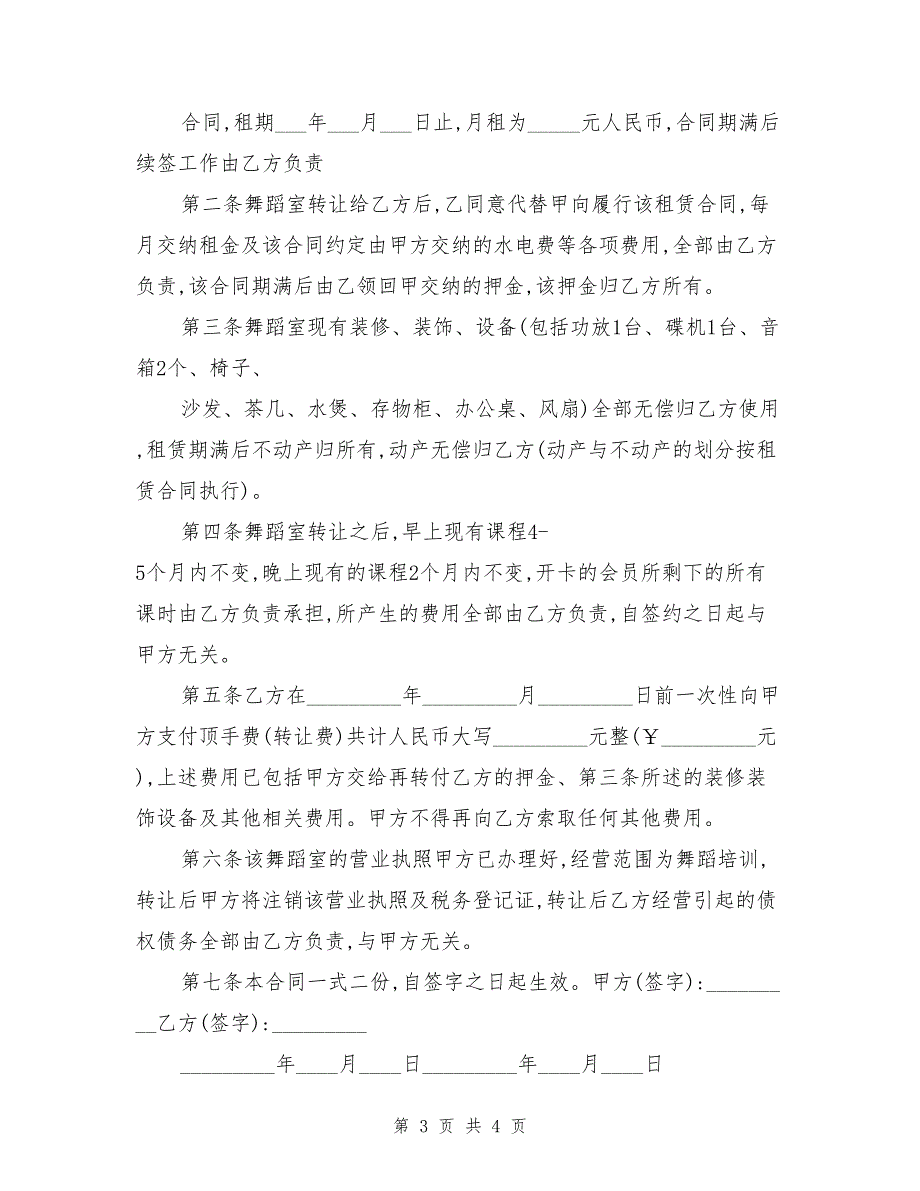 合同,租期___年___月___日止,月租为_____元人民币,合同期满后
续签工作由乙方负责
第二条舞蹈室转让给乙方后,乙同意代替甲向履行该租赁合同,每
月交纳租金及该合同约定由甲方交纳的水电费等各项费用,全部由乙方
负责,该合同期满后由乙领回甲交纳的押金,该押金归乙方所有。
第三条舞蹈室现有装修、装饰、设备(包括功放1台、碟机1台、音
箱2个、椅子、
沙发、茶几、水煲、存物柜、办公桌、风扇)全部无偿归乙方使用
,租赁期满后不动产归所有,动产无偿归乙方(动产与不动产的划分按租
赁合同执行)。
第四条舞蹈室转让之后,早上现有课程4-
5个月内不变,晚上现有的课程2个月内不变,开卡的会员所剩下的所有
课时由乙方负责承担,所产生的费用全部由乙方负责,自签约之日起与
甲方无关。
第五条乙方在_________年_________月_________日前一次性向甲
方支付顶手费(转让费)共计人民币大写_________元整(￥_________元
),上述费用已包括甲方交给再转付乙方的押金、第三条所述的装修装
饰设备及其他相关费用。甲方不得再向乙方索取任何其他费用。
第六条该舞蹈室的营业执照甲方已办理好,经营范围为舞蹈培训,
转让后甲方将注销该营业执照及税务登记证,转让后乙方经营引起的债
权债务全部由乙方负责,与甲方无关。
第七条本合同一式二份,自签字之日起生效。甲方(签字):_______
__乙方(签字):_________
_________年____月____日_________年____月____日
第 3 页 共 4 页